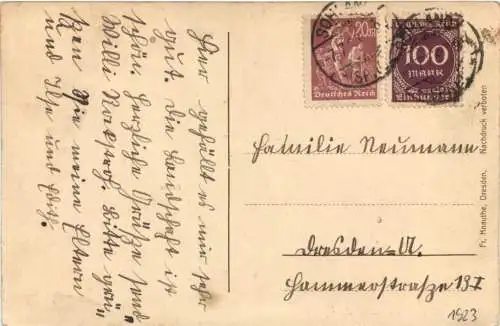 Hier gefällt es mir sehr
gut. Die Landschaft ist
schön. Herzliche Grüße send
Willi. Bitte grü=
ßen Sie meine Eltern
und Ilse und Edith.
20
Deutsches Reich
100
MARK
Familie Neumann
Dresden-A.
Hammerstraße 13 I
Fr. Knauthe, Dresden. Nachdruck verboten
1923